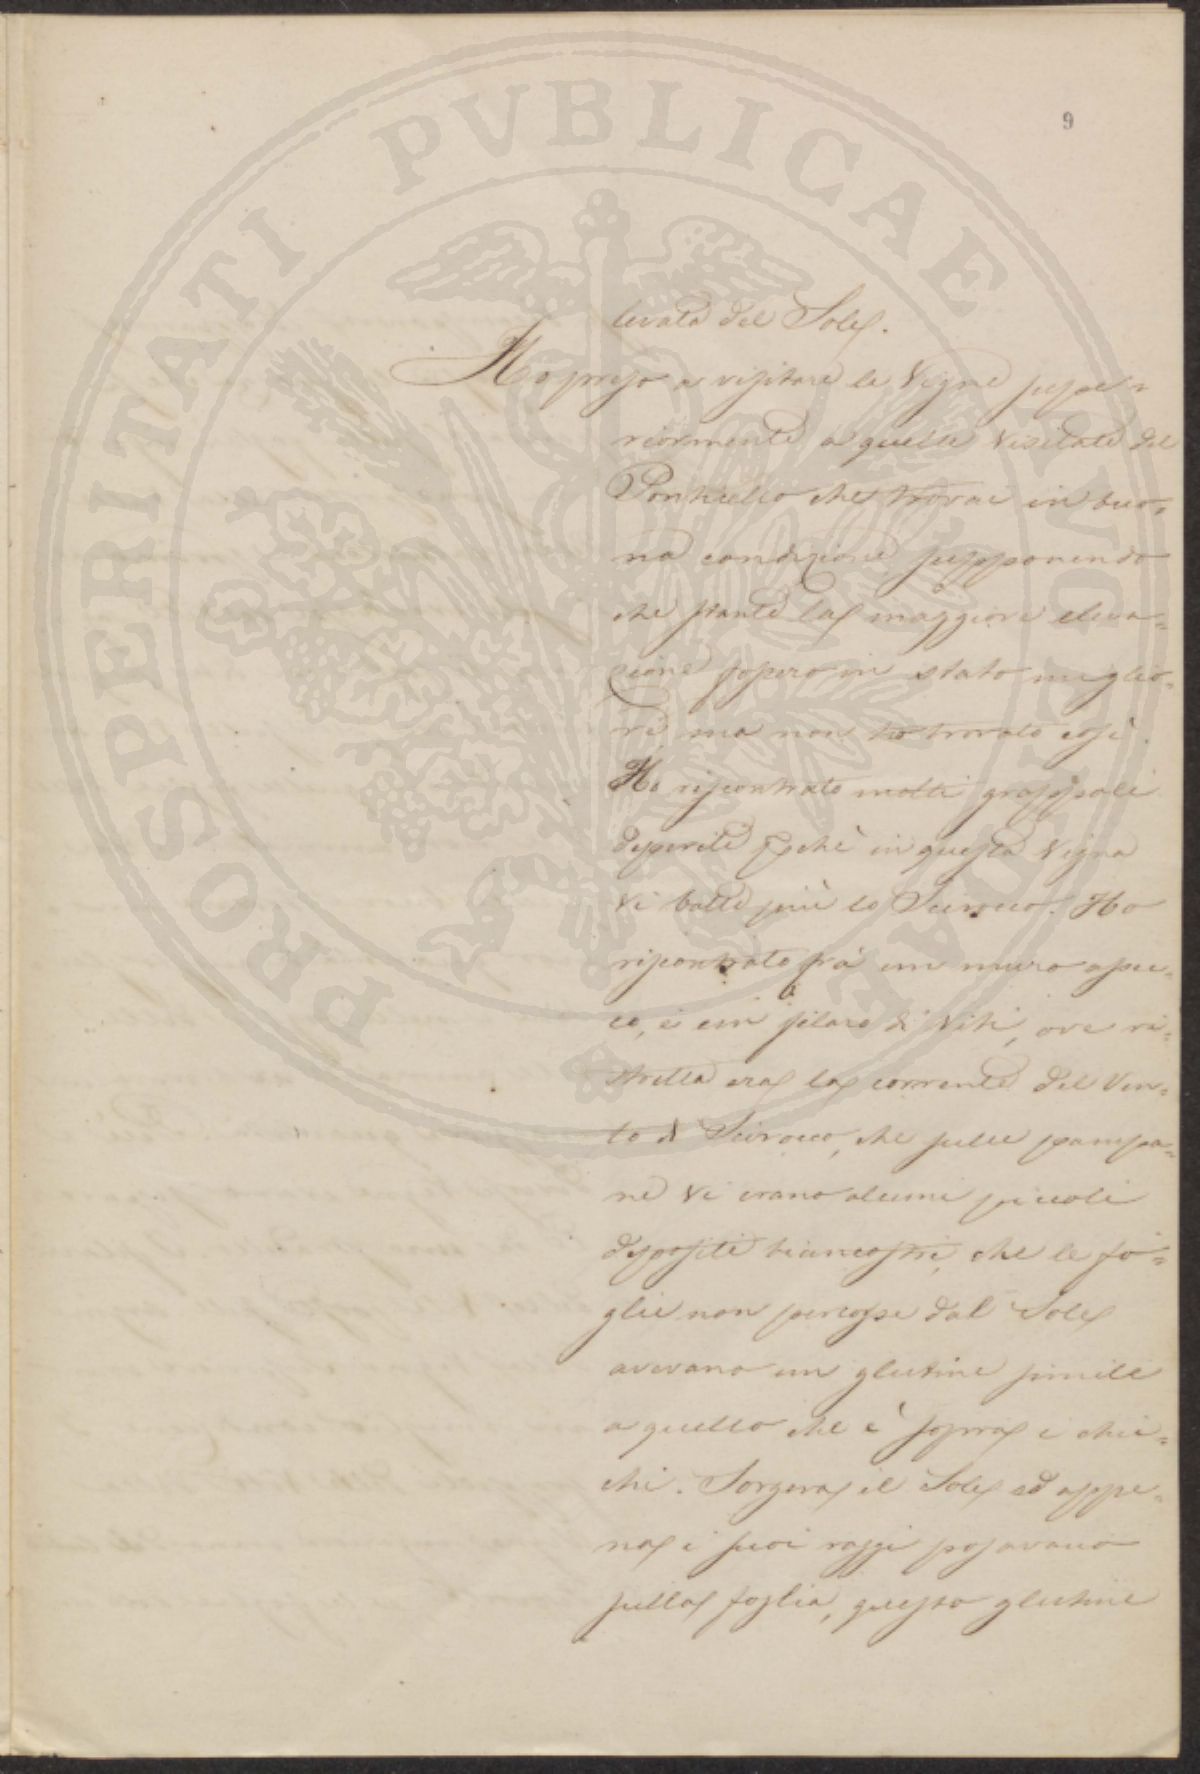 PROSPERITATI PVBLICAE AVGENDAE
9
levata del Sole.
Ho preso a visitare le Vigne supe=
riormente a quelle visitate del
Ponticello che trovai in buo=
na condizione supponendo
che stante la maggiore eleva=
zione fossero in stato miglio=
re, ma non ho trovato così.
Ho riscontrato molti grappoli
deperiti perchè in questa Vigna
vi batte più lo Scirocco. Ho
riscontrato frà un muro a sec=
co, e un filaro di Viti, ove ri=
stretta era la corrente del Ven=
to di Scirocco, che sulle pampa=
ne vi erano alcuni piccoli
depositi biancastri, che le fo=
glie non percosse dal Sole
avevano un glutine simile
a quello che è sopra i chic=
chi. Sorgeva il Sole ed appe=
na i suoi raggi posavano
sulla foglia, questo glutine